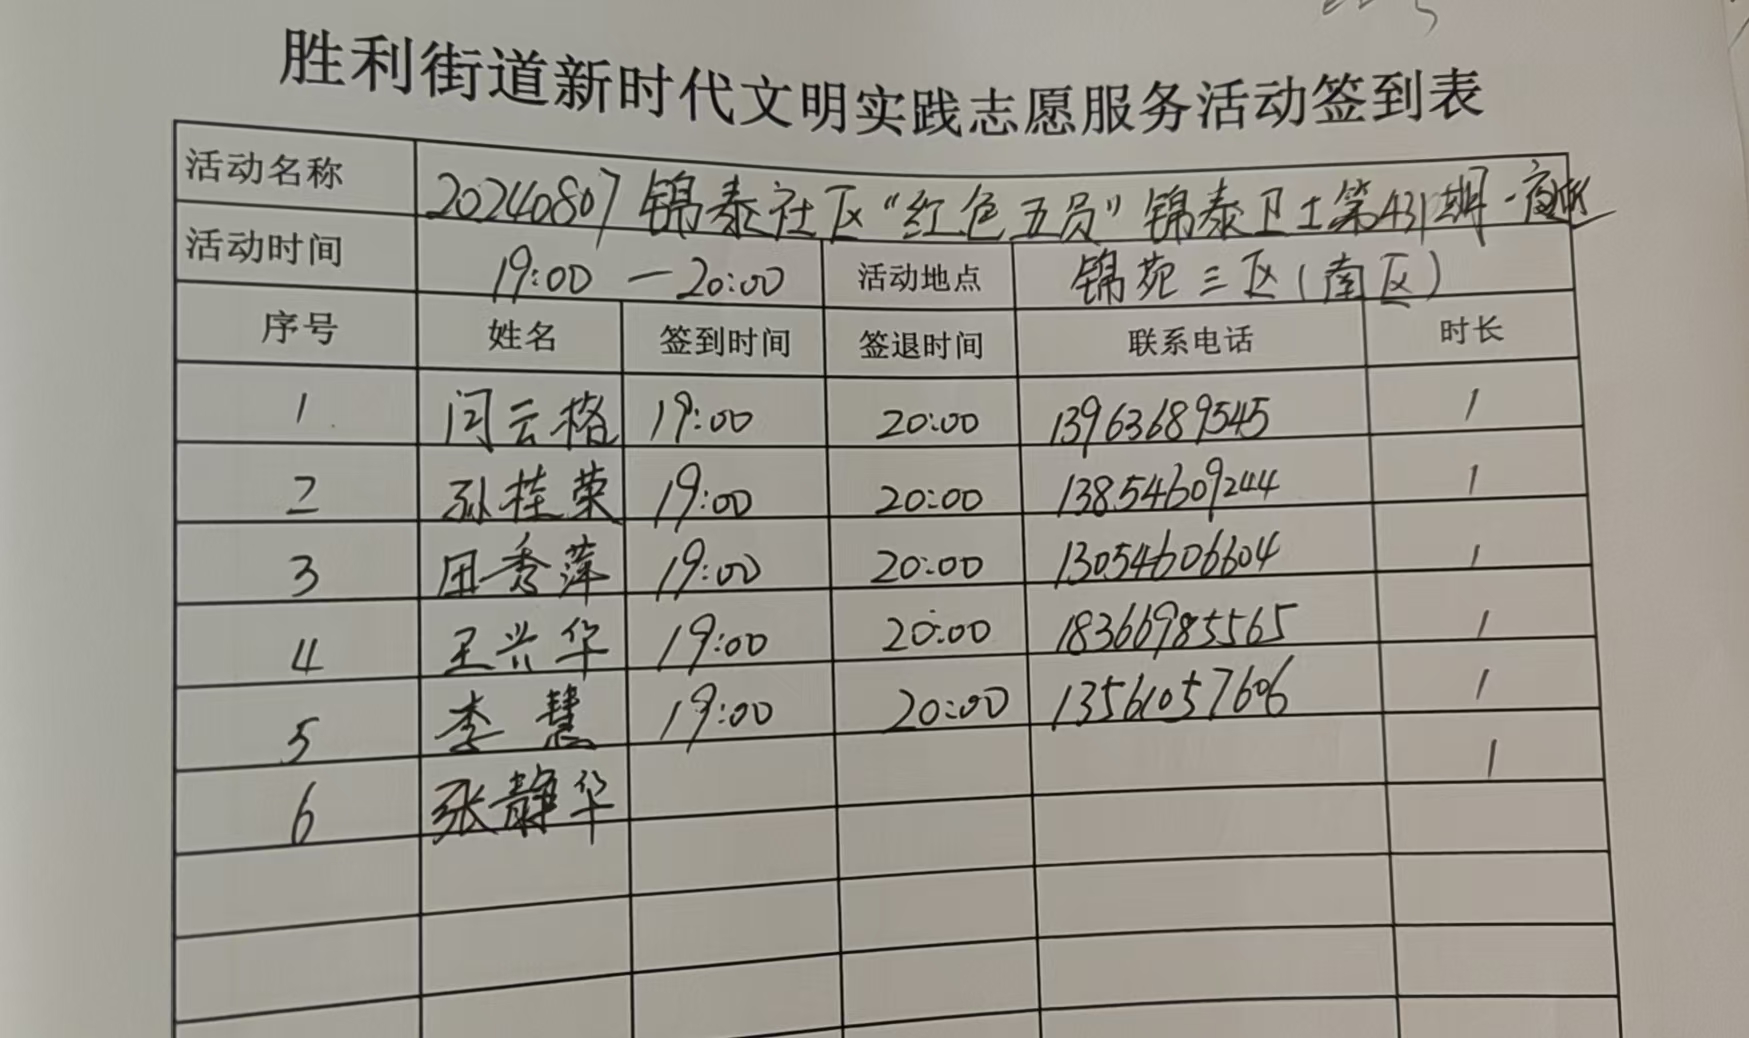 胜利街道新时代文明实践志愿服务活动签到表
活动名称 20240807锦泰社区“红色五员”锦泰卫士第431期-夜巡
活动时间 19:00 — 20:00 活动地点 锦苑三区(南区)
序号 姓名 签到时间 签退时间 联系电话 时长
1 闫云格 19:00 20:00 13963689545 1
2 孙桂荣 19:00 20:00 13854609244 1
3 田秀萍 19:00 20:00 13054606604 1
4 王兴华 19:00 20:00 18366985565 1
5 李慧 19:00 20:00 13561057606 1
6 张静华 1